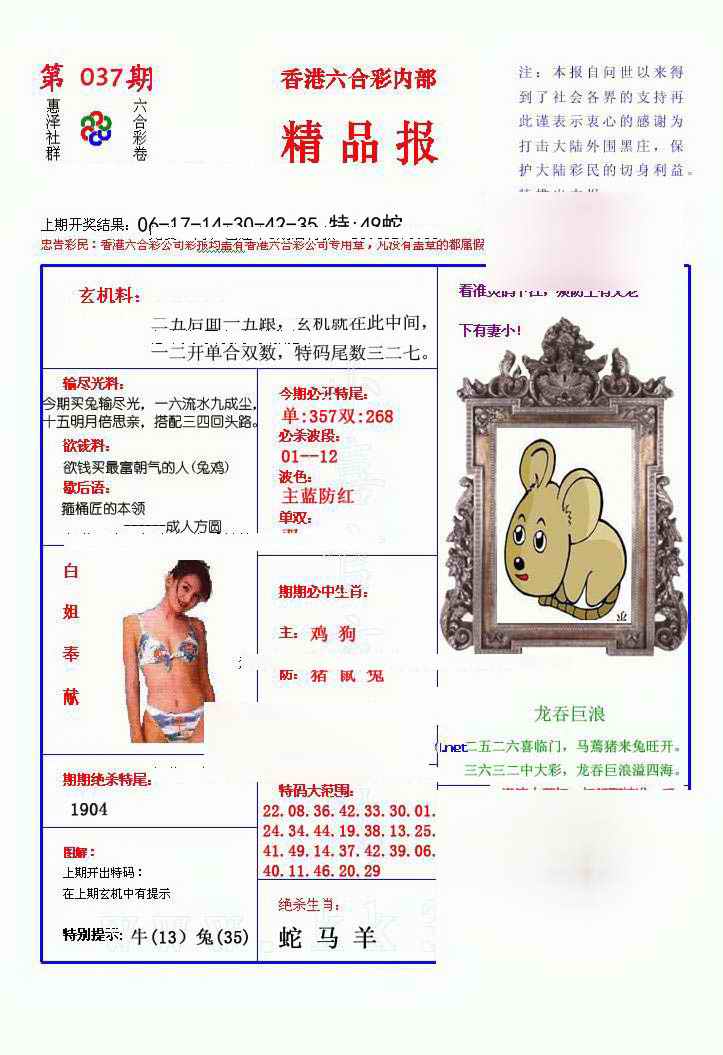 第 037期
惠泽社群
六合彩卷
香港六合彩内部
精品报
注：本报自问世以来得
到了社会各界的支持再
此谨表示衷心的感谢为
打击大陆外围黑庄，保
护大陆彩民的切身利益。
上期开奖结果：06-17-14-30-42-35 特:49蛇
忠告彩民：香港六合彩公司彩报均盖有香港六合彩公司专用章，凡没有盖章的都属假
玄机料：
二五后面一五跟，玄机就在此中间，
一二开单合双数，特码尾数三二七。
输尽光料：
今期买兔输尽光，一六流水九成尘，
十五明月倍思亲，搭配三四回头路。
欲钱料：
欲钱买最富朝气的人(兔鸡)
歇后语：
箍桶匠的本领
------成人方圆
今期必开特尾：
单:357双:268
必杀波段：
01--12
波色：
主蓝防红
单双：
下有妻小!
白姐奉献
期期必中生肖：
主：鸡 狗
防：猪 鼠 兔
龙吞巨浪
.net
二五二六喜临门，马蔫猪来兔旺开。
三六三二中大彩，龙吞巨浪溢四海。
期期绝杀特尾：
1904
特码大范围：
22.08.36.42.33.30.01.
24.34.44.19.38.13.25.
41.49.14.37.42.39.06.
40.11.46.20.29
图解：
上期开出特码：
在上期玄机中有提示
特别提示: 牛(13) 兔(35)
绝杀生肖：
蛇 马 羊